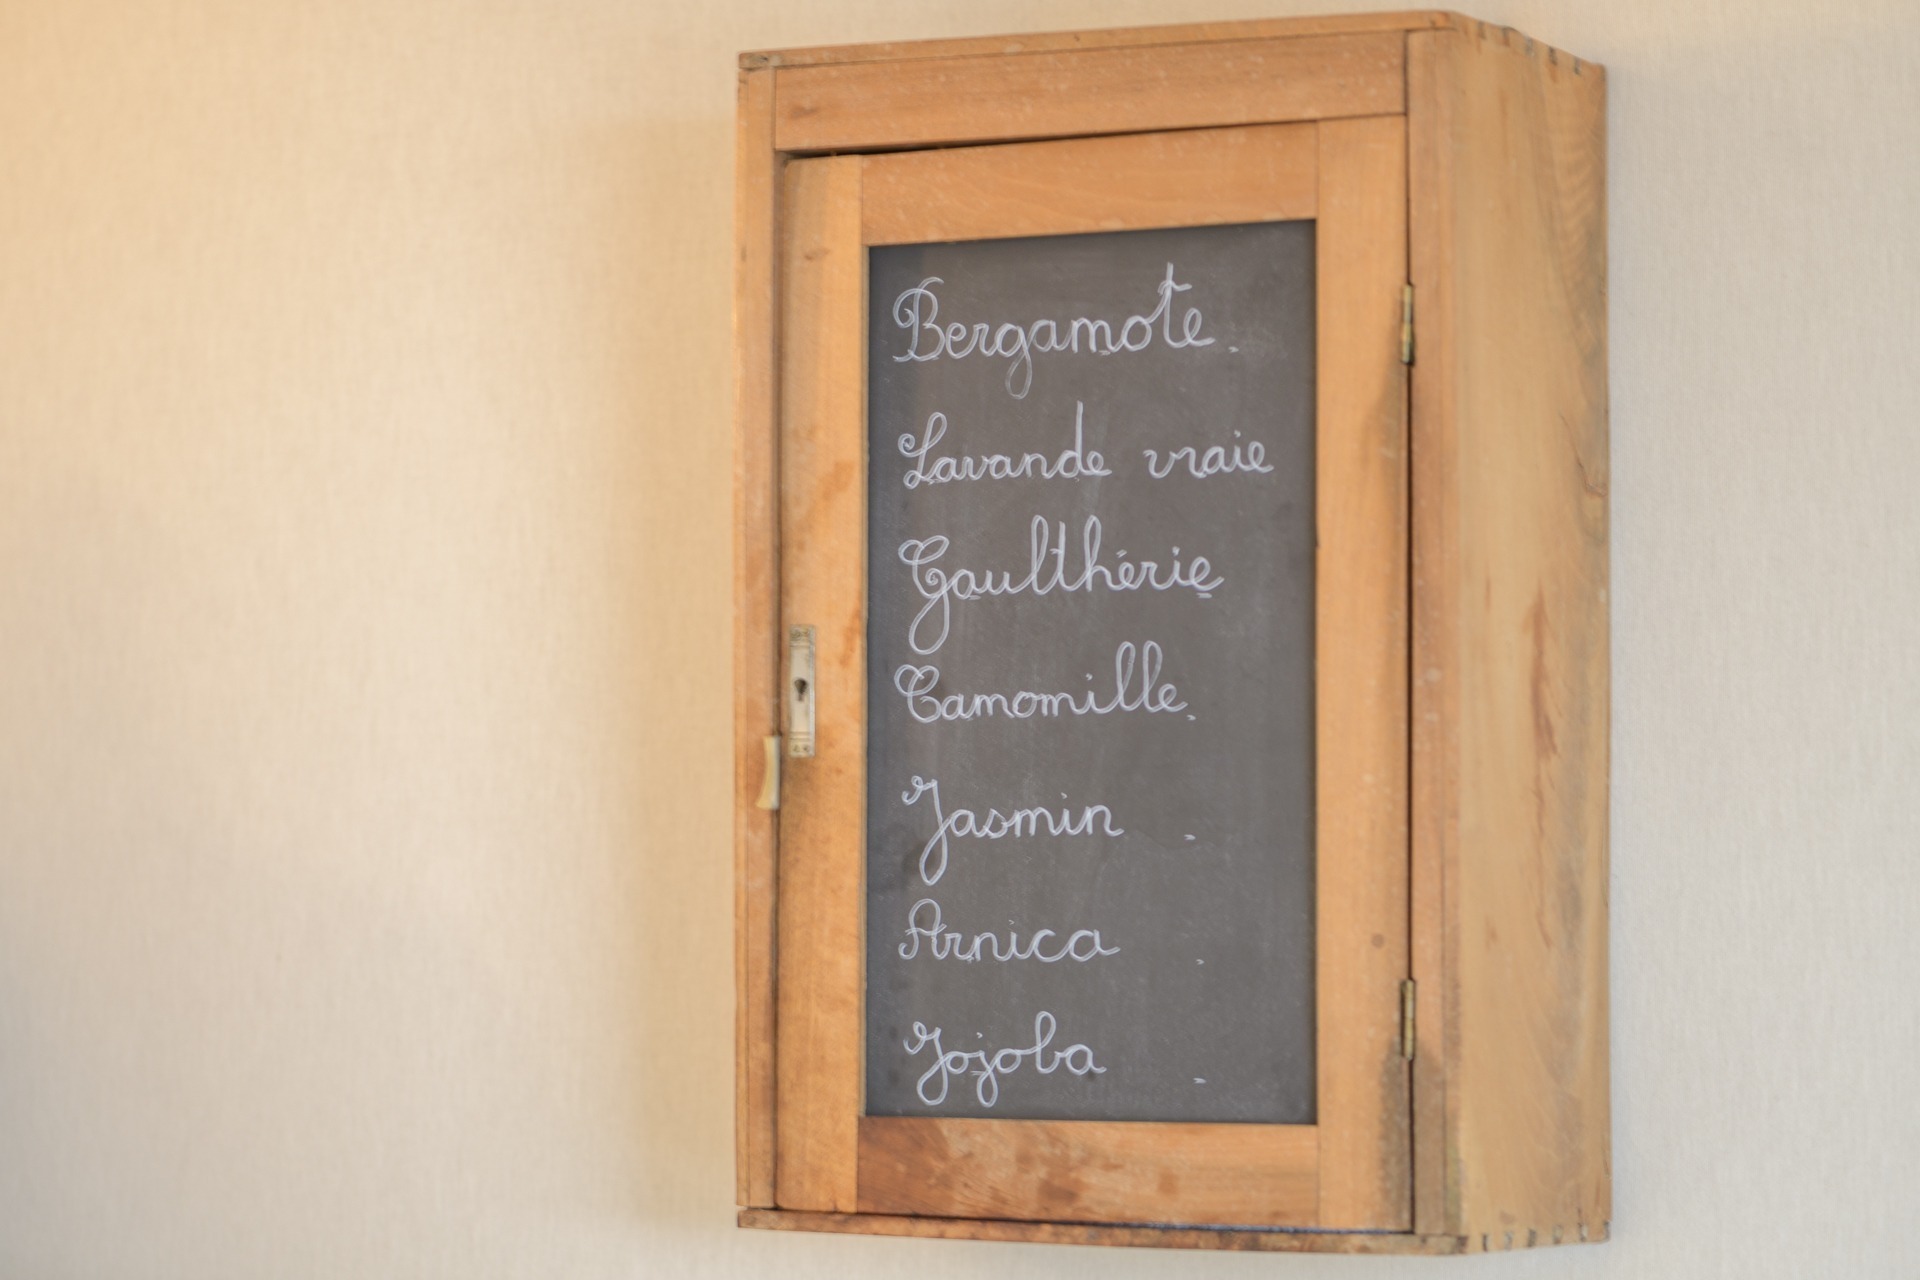 Bergamote
Lavande vraie
Gaulthérie
Camomille
Jasmin
Arnica
Jojoba